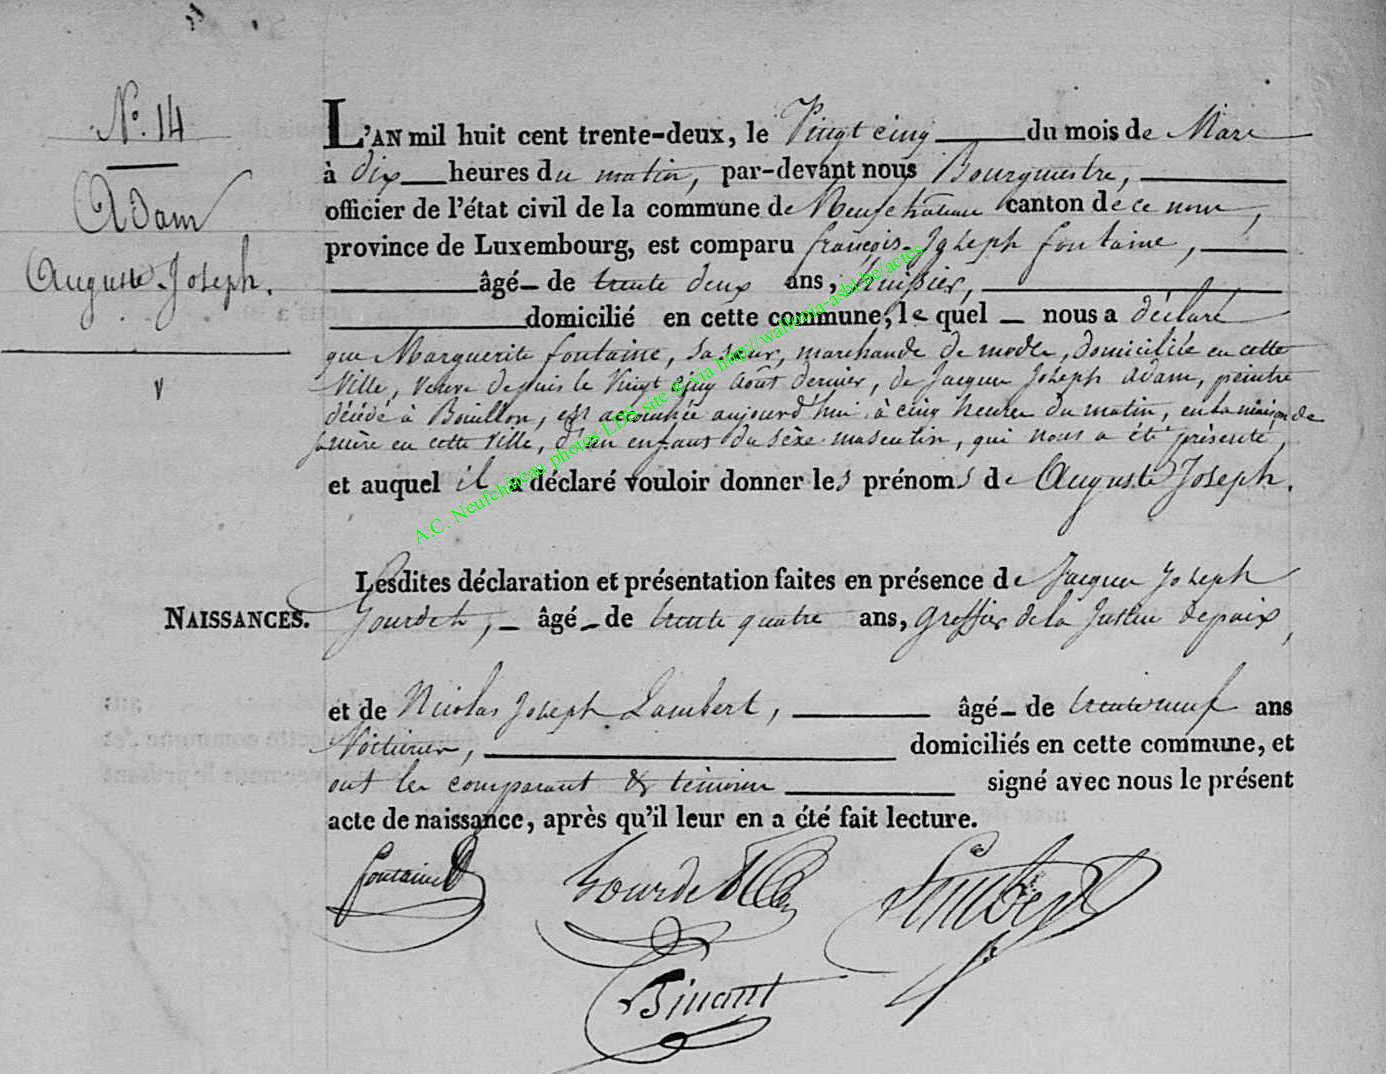 N.º 14
Adam
Auguste-Joseph.
v
L'AN mil huit cent trente-deux, le Vingt cinq du mois de Mars
à dix heures du matin, par-devant nous Bourgmestre,
officier de l'état civil de la commune de Neufchâteau canton de ce nom,
province de Luxembourg, est comparu françois-Joseph fontaine,
âgé de trente deux ans, huissier,
domicilié en cette commune, lequel nous a déclaré
que Marguerite fontaine, sa sœur, marchande de modes, domiciliée en cette
ville, veuve depuis le Vingt cinq août dernier, de Jacques Joseph Adam, peintre
décédé à Bouillon, est accouchée aujourd'hui à cinq heures du matin, en sa maison de
en cette ville, d'un enfant du sèxe masculin, qui nous a été présenté,
et auquel il a déclaré vouloir donner les prénoms de Auguste Joseph.
A.C. Neufchâteau photos LDS site © via http://wallonia-asbl.be/actes
Lesdites déclaration et présentation faites en présence de Jacques Joseph
NAISSANCES.
Gourdet, âgé de trente quatre ans, greffier de la Justice de paix,
et de Nicolas Joseph Lambert, âgé de trente neuf ans
Voiturier, domiciliés en cette commune, et
ont les comparant & témoins signé avec nous le présent
acte de naissance, après qu'il leur en a été fait lecture.
fontaine
Gourdet
Lambert
Binant